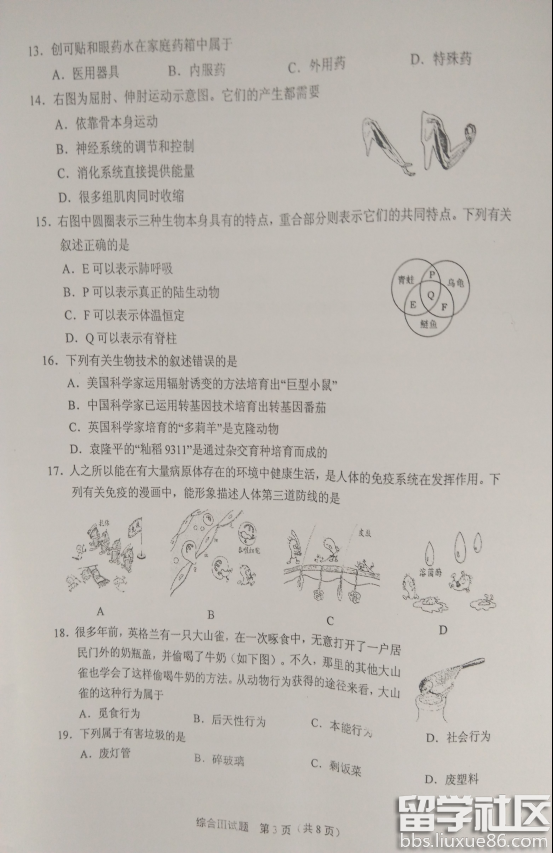 13. 创可贴和眼药水在家庭药箱中属于
A. 医用器具 B. 内服药 C. 外用药 D. 特殊药
14. 右图为屈肘、伸肘运动示意图。它们的产生都需要
A. 依靠骨本身运动
B. 神经系统的调节和控制
C. 消化系统直接提供能量
D. 很多组肌肉同时收缩
15. 右图中圆圈表示三种生物本身具有的特点，重合部分则表示它们的共同特点。下列有关
叙述正确的是
A. E 可以表示肺呼吸
B. P 可以表示真正的陆生动物
C. F 可以表示体温恒定
D. Q 可以表示有脊柱
青蛙 P 乌龟
Q
E F
鲫鱼
16. 下列有关生物技术的叙述错误的是
A. 美国科学家运用辐射诱变的方法培育出“巨型小鼠”
B. 中国科学家已运用转基因技术培育出转基因番茄
C. 英国科学家培育的“多莉羊”是克隆动物
D. 袁隆平的“籼稻 9311”是通过杂交育种培育而成的
17. 人之所以能在有大量病原体存在的环境中健康生活，是人体的免疫系统在发挥作用。下
列有关免疫的漫画中，能形象描述人体第三道防线的是
抗体 皮肤
溶菌酶
A B C D
18. 很多年前，英格兰有一只大山雀，在一次啄食中，无意打开了一户居
民门外的奶瓶盖，并偷喝了牛奶（如下图）。不久，那里的其他大山
雀也学会了这样偷喝牛奶的方法。从动物行为获得的途径来看，大山
雀的这种行为属于
A. 觅食行为 B. 后天性行为 C. 本能行为 D. 社会行为
19. 下列属于有害垃圾的是
A. 废灯管 B. 碎玻璃 C. 剩饭菜 D. 废塑料
综合III试题 第 3 页（共 8 页）
留学社区
bbs.liuxue86.com